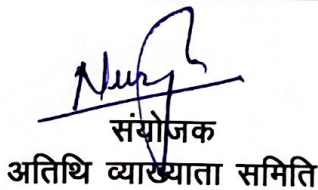 संयोजक
अतिथि व्याख्याता समिति